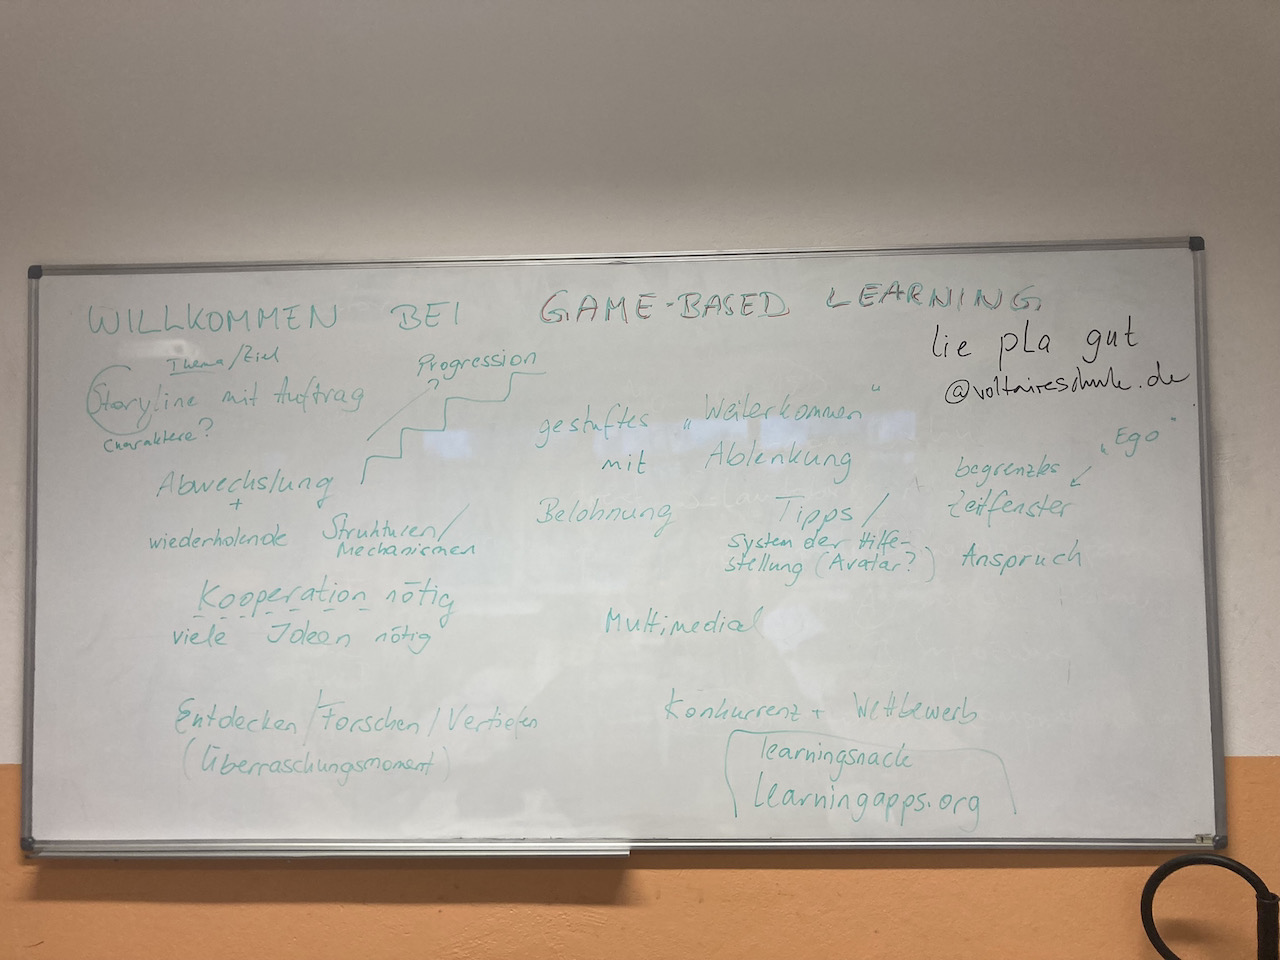 WILLKOMMEN BEI GAME-BASED LEARNING
lie pla gut
@voltaireschule.de
Thema/Ziel
Storyline mit Auftrag
Charaktere?
Progression
Abwechslung
+
wiederholende Strukturen/
Mechanismen
Kooperation nötig
viele Ideen nötig
Entdecken/Forschen/Vertiefen
(Überraschungsmoment)
gestuftes „Weiterkommen“
mit Ablenkung
Belohnung
Tipps/
System der Hilfe-
stellung (Avatar?)
„Ego“
begrenztes
Zeitfenster
Anspruch
Multimedial
Konkurrenz + Wettbewerb
learningsnack
learningapps.org